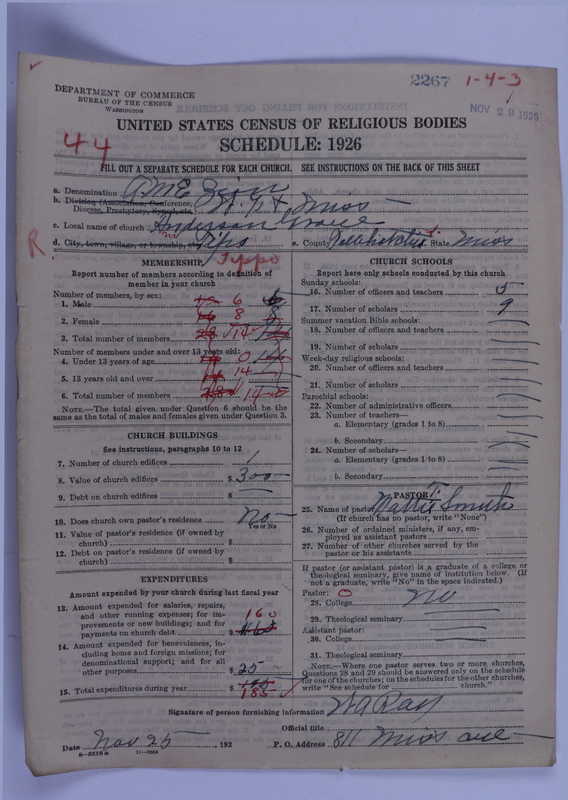 2267 1-4-3
NOV 29 1926
DEPARTMENT OF COMMERCE
BUREAU OF THE CENSUS
WASHINGTON
UNITED STATES CENSUS OF RELIGIOUS BODIES
SCHEDULE: 1926
44
FILL OUT A SEPARATE SCHEDULE FOR EACH CHURCH. SEE INSTRUCTIONS ON THE BACK OF THIS SHEET
a. Denomination AME Zion
b. Division (Association, Conference, Diocese, Presbytery, Synod, etc.) Miss
c. Local name of church Anderson
d. City, town, village, or township, etc.
e. County Tallahatchie State Miss
R.
Tippo
MEMBERSHIP
Report number of members according to definition of member in your church
Number of members, by sex:
1. Male 6
2. Female 8 8
3. Total number of members 14
Number of members under and over 13 years old:
4. Under 13 years of age 0
5. 13 years old and over 14
6. Total number of members 14
NOTE.—The total given under Question 6 should be the same as the total of males and females given under Question 3.
CHURCH BUILDINGS
See instructions, paragraphs 10 to 12
7. Number of church edifices 1
8. Value of church edifices $ 300
9. Debt on church edifices $
10. Does church own pastor's residence No
Yes or No
11. Value of pastor's residence (if owned by church) $
12. Debt on pastor's residence (if owned by church) $
EXPENDITURES
Amount expended by your church during last fiscal year
13. Amount expended for salaries, repairs, and other running expenses; for improvements or new buildings; and for payments on church debt $ 160
14. Amount expended for benevolences, including home and foreign missions; for denominational support; and for all other purposes $ 25
15. Total expenditures during year $ 185
CHURCH SCHOOLS
Report here only schools conducted by this church
Sunday schools:
16. Number of officers and teachers 5
17. Number of scholars 9
Summer vacation Bible schools:
18. Number of officers and teachers
19. Number of scholars
Week-day religious schools:
20. Number of officers and teachers
21. Number of scholars
Parochial schools:
22. Number of administrative officers
23. Number of teachers—
a. Elementary (grades 1 to 8)
b. Secondary
24. Number of scholars—
a. Elementary (grades 1 to 8)
b. Secondary
PASTOR
25. Name of pastor Mattie Smith
(If church has no pastor, write "None")
26. Number of ordained ministers, if any, employed as assistant pastors
27. Number of other churches served by the pastor or his assistants
If pastor (or assistant pastor) is a graduate of a college or theological seminary, give name of institution below. (If not a graduate, write "No" in the space indicated.)
Pastor: O
28. College no
29. Theological seminary
Assistant pastor:
30. College
31. Theological seminary
NOTE.—Where one pastor serves two or more churches, Questions 28 and 29 should be answered only on the schedule for one of the churches; on the schedules for the other churches, write "See schedule for church."
Signature of person furnishing information
Official title
Date Nov 25, 192
P. O. Address 811 Miss ave
8—5518 a 11—9084